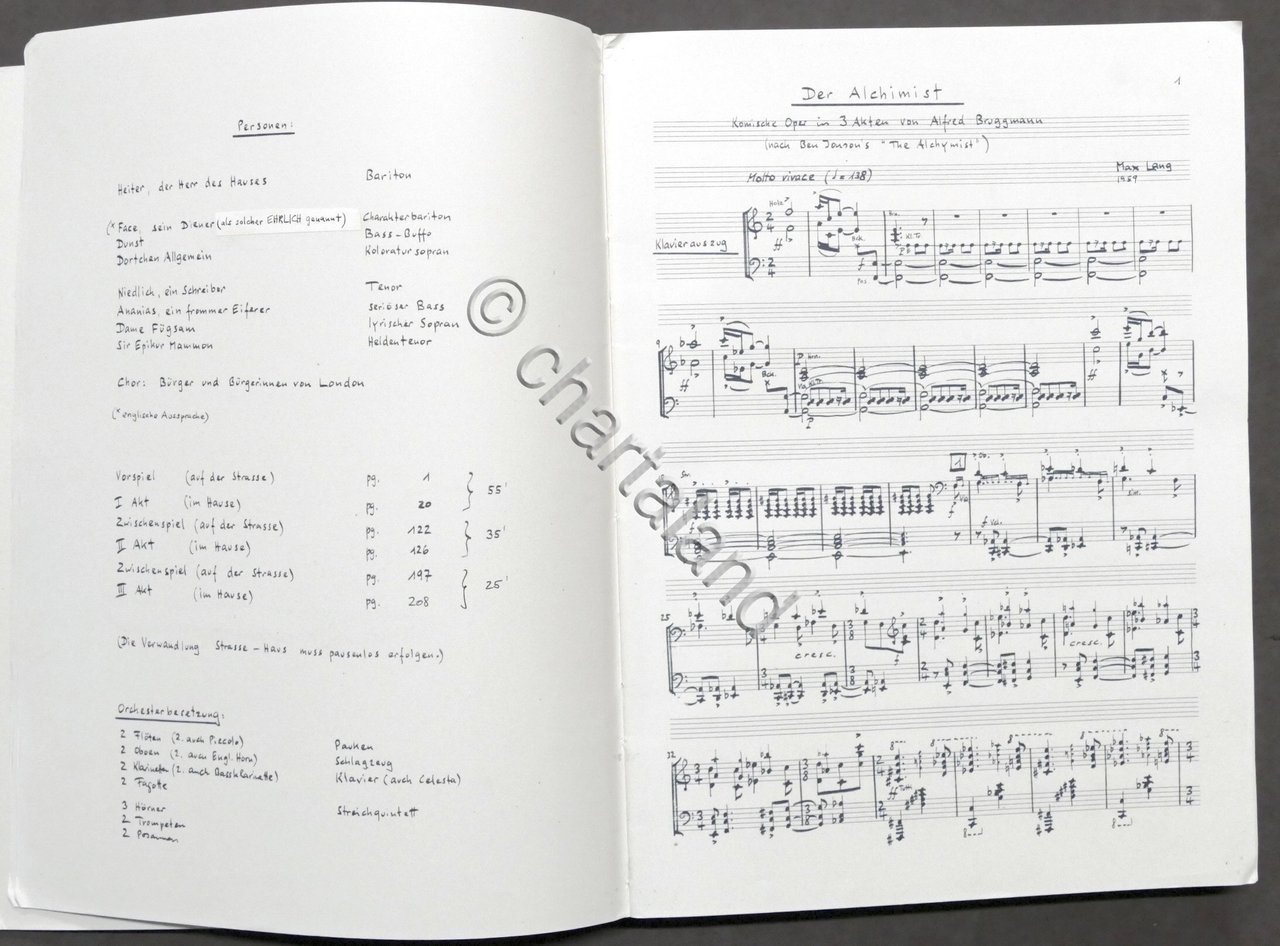 Personen:
Heiter, der Herr des Hauses Bariton
(* Face, sein Diener (als solcher EHRLICH genannt) Charakterbariton
Dunst Bass-Buffo
Dortchen Allgemein Koloratursopran
Niedlich, ein Schreiber Tenor
Ananias, ein frommer Eiferer seriöser Bass
Dame Fügsam lyrischer Sopran
Sir Epikur Mammon Heldentenor
Chor: Bürger und Bürgerinnen von London
(* englische Aussprache)
Vorspiel (auf der Strasse) pg. 1
I Akt (im Hause) pg. 20
55'
Zwischenspiel (auf der Strasse) pg. 122
II Akt (im Hause) pg. 126
35'
Zwischenspiel (auf der Strasse) pg. 197
III Akt (im Hause) pg. 208
25'
(Die Verwandlung Strasse - Haus muss pausenlos erfolgen.)
Orchesterbesetzung:
2 Flöten (2. auch Piccolo)
2 Oboen (2. auch Engl. Horn)
2 Klarinetten (2. auch Bassklarinette)
2 Fagotte
3 Hörner
2 Trompeten
2 Posaunen
Pauken
Schlagzeug
Klavier (auch Celesta)
Streichquintett
1
Der Alchimist
Komische Oper in 3 Akten von Alfred Bruggmann
(nach Ben Jonson's "The Alchymist")
Max Lang
1989
Molto vivace (♩= 138)
Klavierauszug
Holz
ff
Bck.
f
Pos
Hrn.
Kl.Tr.
P
9
ff
Bck.
Hrn.
P
ff
Str.
1
Ob.
f Vcl.
Str.
25
cresc.
f
cresc.
32
ff Tutti
8
8
8
8
8
8
8
© chartaland